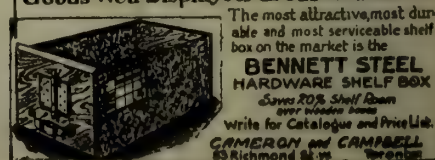 The most attractive, most dur-
able and most serviceable shelf
box on the market is the
BENNETT STEEL
HARDWARE SHELF BOX
Saves 20% Shelf Room
over wooden boxes
Write for Catalogue and Price List.
CAMERON and CAMPBELL
Richmond St. W. Toronto